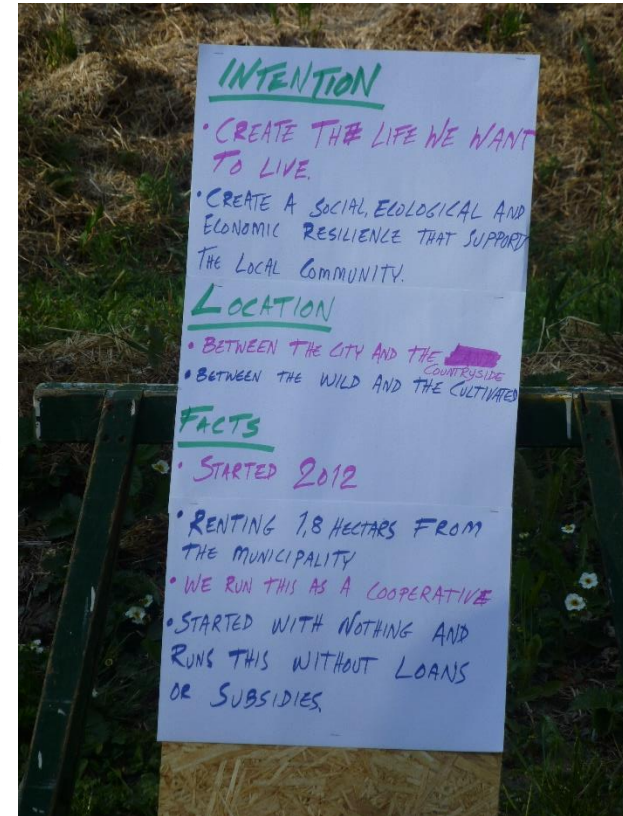 INTENTION
• CREATE THE LIFE WE WANT
TO LIVE.
• CREATE A SOCIAL, ECOLOGICAL AND
ECONOMIC RESILIENCE THAT SUPPORTS
THE LOCAL COMMUNITY.
LOCATION
• BETWEEN THE CITY AND THE
COUNTRYSIDE
• BETWEEN THE WILD AND THE CULTIVATED
FACTS
• STARTED 2012
• RENTING 1,8 HECTARS FROM
THE MUNICIPALITY
• WE RUN THIS AS A COOPERATIVE
• STARTED WITH NOTHING AND
RUNS THIS WITHOUT LOANS
OR SUBSIDIES.